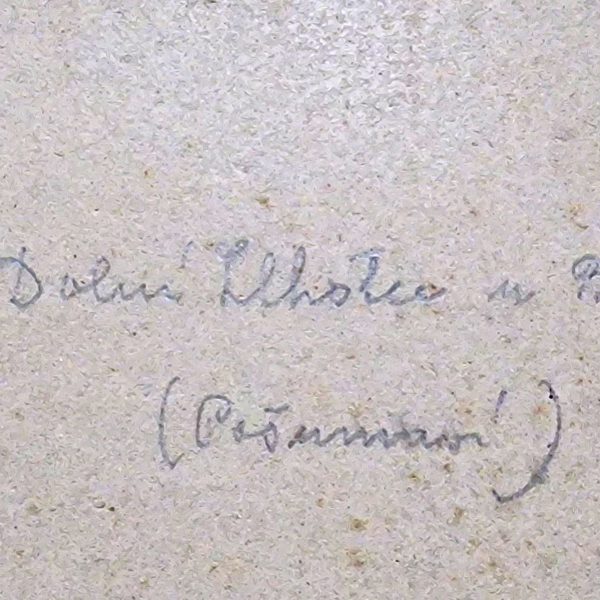 Dolní Lhotce u
(Pošumaví)